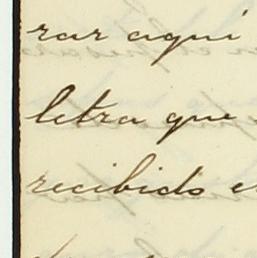 rar aqui
letra que
recibido e